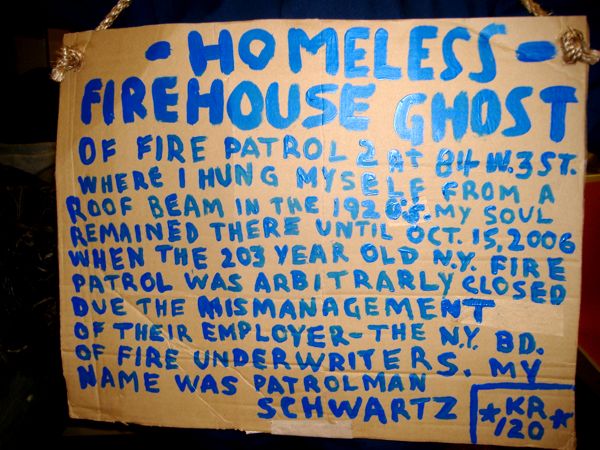 - HOMELESS -
FIREHOUSE GHOST
OF FIRE PATROL 2 AT 84 W. 3 ST.
WHERE I HUNG MYSELF FROM A
ROOF BEAM IN THE 1920'S. MY SOUL
REMAINED THERE UNTIL OCT. 15, 2006
WHEN THE 203 YEAR OLD N.Y. FIRE
PATROL WAS ARBITRARLY CLOSED
DUE THE MISMANAGEMENT
OF THEIR EMPLOYER-THE N.Y. BD.
OF FIRE UNDERWRITERS. MY
NAME WAS PATROLMAN
SCHWARTZ
*KR*
120